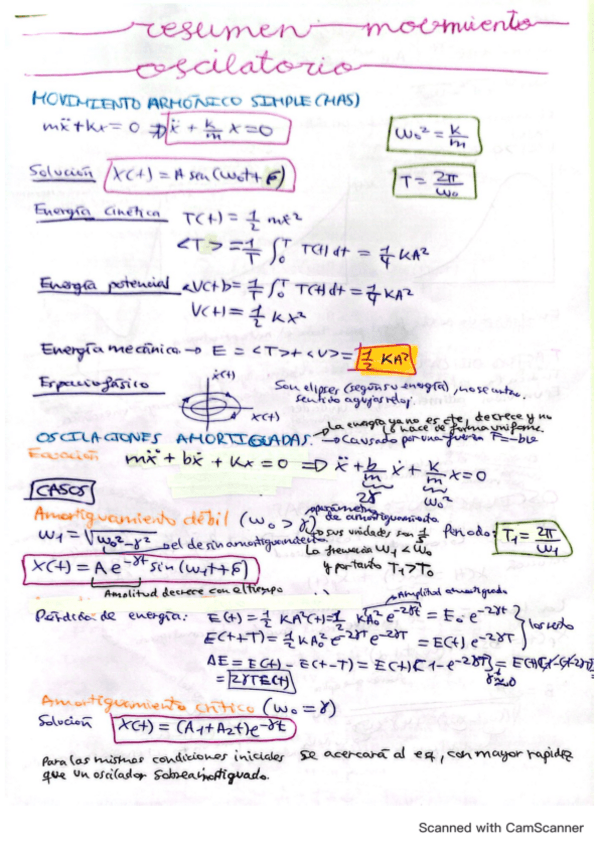 resumen movimiento
oscilatorio
MOVIMIENTO ARMÓNICO SIMPLE (MAS)
mẍ+Kx=0 ⇒ ẍ + k/m x=0
ω₀² = k/m
Solución X(t) = A sen(ω₀t + δ)
T = 2π/ω₀
Energía cinética T(t) = 1/2 mẋ²
<T> = 1/T ∫₀ᵀ T(t) dt = 1/4 KA²
Energía potencial <V(t)> = 1/T ∫₀ᵀ T(t) dt = 1/4 KA²
V(t) = 1/2 Kx²
Energía mecánica → E = <T> + <U> = 1/2 KA²
Espacio fásico
ẋ(t)
X(t)
Son elipses (según su energía), no se cortan,
sentido agujas reloj.
La energía ya no es cte, decrece y no
lo hace de forma uniforme.
OSCILACIONES AMORTIGUADAS. → Causado por una fuerza F=-bẋ
Ecuación mẍ + bẋ + Kx = 0 ⇒ ẍ + b/m ẋ + k/m x=0
2γ ω₀²
CASOS
Amortiguamiento débil (ω₀ > γ)
parámetro de amortiguamiento
sus unidades son 1/t
ω₁ = √ω₀² - γ² el de sin amortiguamiento
La frecuencia ω₁ < ω₀
y por tanto T₁ > T₀
Periodo: T₁ = 2π/ω₁
X(t) = A e^-γt sin (ω₁t + δ)
Amplitud decrece con el tiempo
Amplitud amortiguada
Pérdida de energía: E(t) = 1/2 KA²(t) = 1/2 KA₀² e^-2γt = E₀ e^-2γt
E(t+T) = 1/2 KA₀² e^-2γT e^-2γt = E(t) e^-2γT
ΔE = E(t) - E(t-T) = E(t)(1-e^-2γT) = E(t)(1-(1-2γT))
= 2γTE(t)
Amortiguamiento crítico (ω₀ = γ)
Solución X(t) = (A₁+A₂t)e^-γt
Para las mismas condiciones iniciales se acercará al eq, con mayor rapidez
que un oscilador sobreamortiguado.
Scanned with CamScanner